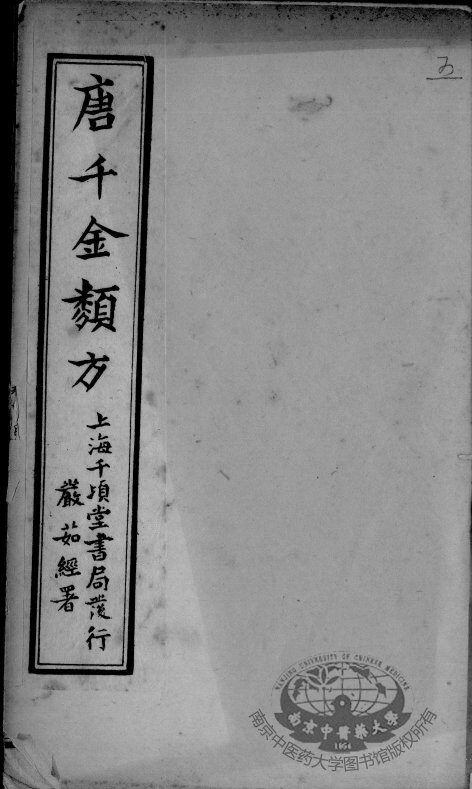 五
唐千金類方
上海千頃堂書局發行
嚴茹經署
NANJING UNIVERSITY OF CHINESE MEDICINE
南京中醫藥大學
1954
南京中医药大学图书馆版权所有